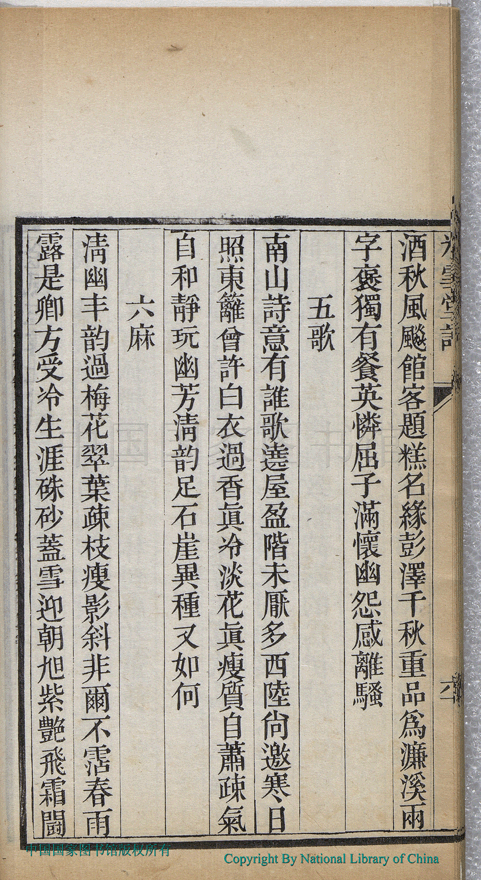 酒秋風颺館客題糕名緣彭澤千秋重品爲濂溪兩
字褒獨有餐英憐屈子滿懷幽怨感離騷
五歌
南山詩意有誰歌遶屋盈階未厭多西陸尙邀寒日
照東籬曾許白衣過香眞冷淡花眞瘦質自蕭疎氣
自和靜玩幽芳淸韵足石崖異種又如何
六麻
淸幽丰韵過梅花翠葉疎枝瘦影斜非爾不霑春雨
露是卿方受冷生涯硃砂蓋雪迎朝旭紫艷飛霜鬪
中国国家图书馆版权所有
Copyright By National Library of China